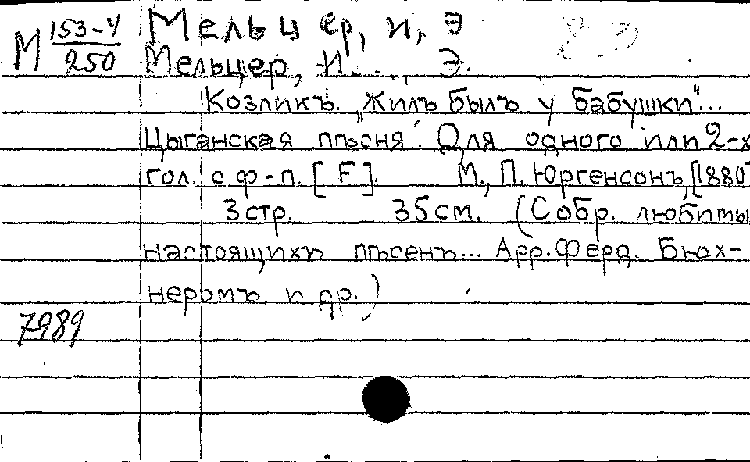 М 153-4/250 Мельцер, И, Э
Мельцер, И. . , Э.
Козликъ. "Жилъ былъ у бабушки"...
Цыганская пѣсня. Для одного или 2-х
гол. с ф-п. [F]. М., П. Юргенсонъ, [1880
3 стр. 35 см. (Собр. любимы
настоящихъ пѣсенъ... Арр. Ферд. Бюх-
неромъ и др.)
7989